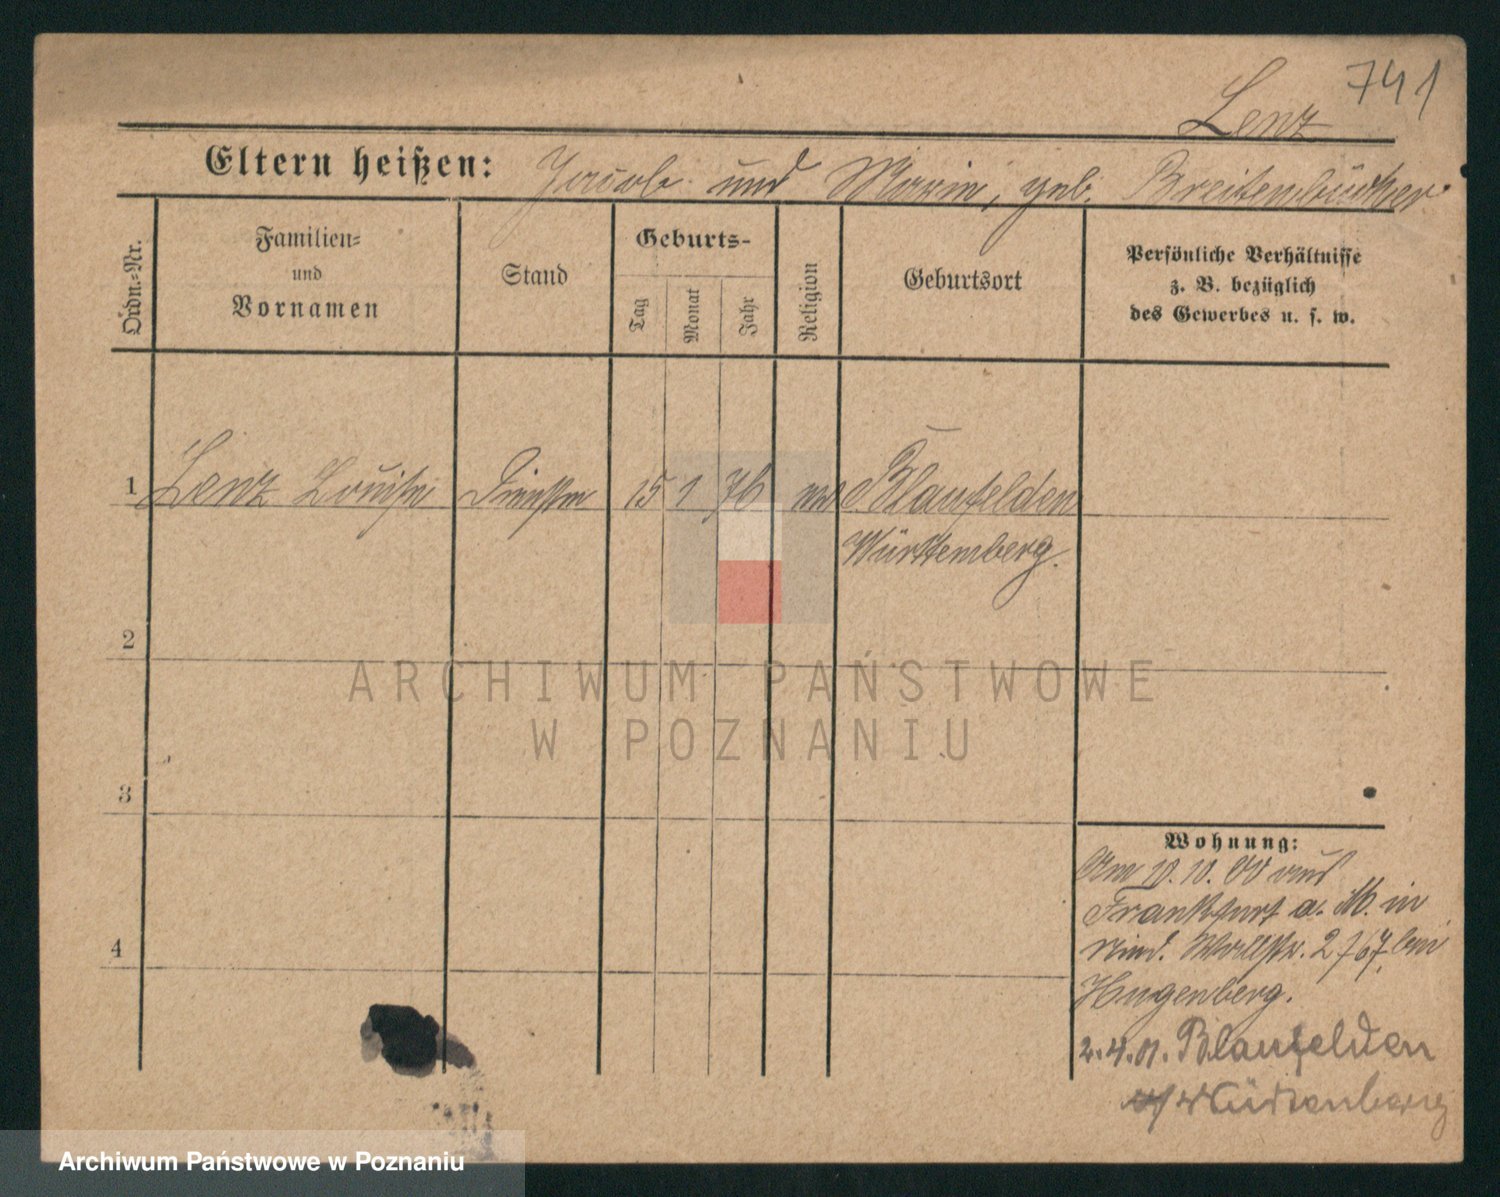 741
Lenz
Eltern heißen: Jacob und Marie, geb. Breitenbücher
Ordn.-Nr.
Familien-
und
Vornamen
Stand
Geburts-
Tag
Monat
Jahr
Religion
Geburtsort
Persönliche Verhältnisse
z. B. bezüglich
des Gewerbes u. s. w.
1 Lenz Louise 15 1 76 Blaufelden
Württemberg.
2
3
4
ARCHIWUM PAŃSTWOWE
W POZNANIU
Wohnung:
Am 10. 10. 00 aus
Frankfurt a. M. in
2767, bei
Hugenberg.
2.4.01. Blaufelden
Archiwum Państwowe w Poznaniu